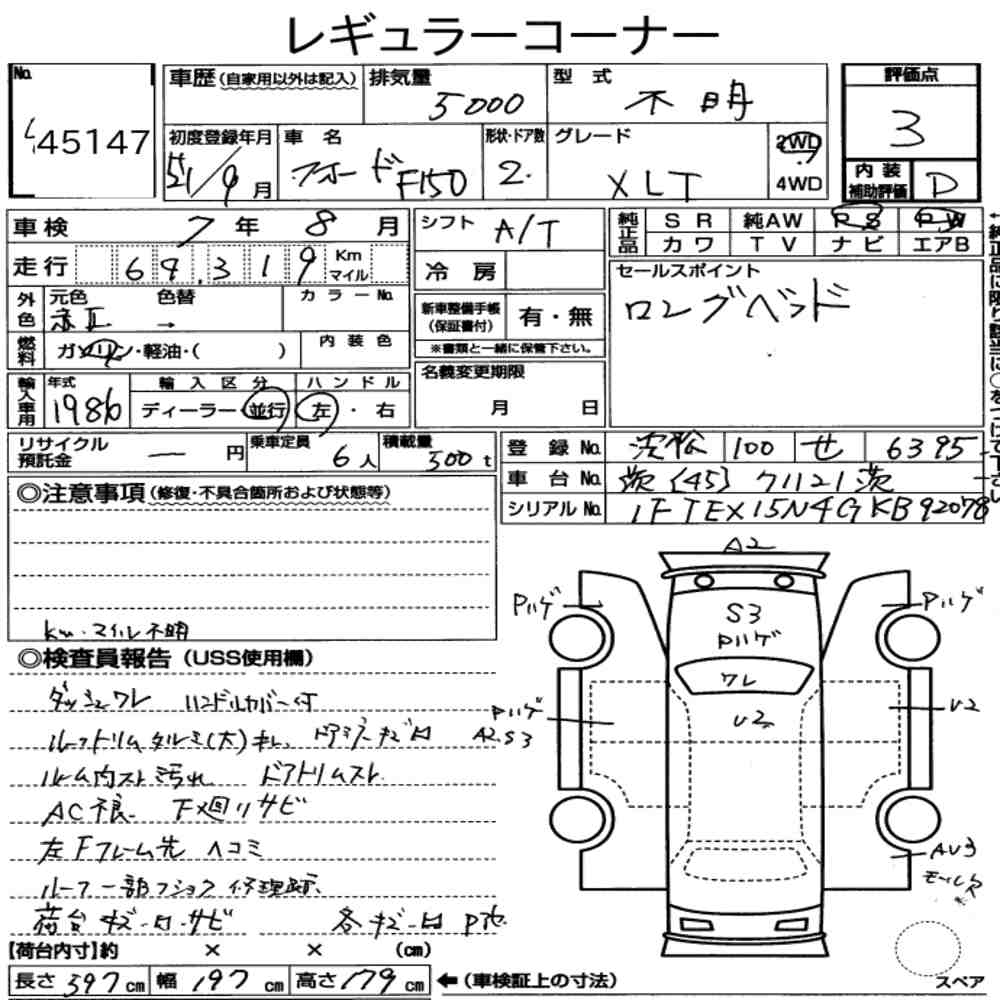 レギュラーコーナー
No. 45147
車歴 (自家用以外は記入)
排気量 5000
型式 不明
評価点 3
初度登録年月 S61/9月
車名 フォード F150
形状・ドア数 2.
グレード XLT
2WD 4WD
内装補助評価 D
車検 7年 8月
走行 64,319 Km マイル
シフト A/T
冷房
純正品 SR 純AW PS PW
カワ TV ナビ エアB
外色 元色 赤 色替 → カラーNo.
新車整備手帳 (保証書付) 有・無
※書類と一緒に保管下さい。
セールスポイント
ロングベッド
燃料 ガソリン・軽油・( )
内装色
名義変更期限 月 日
輸入車用 年式 1986
輸入区分 ディーラー・並行
ハンドル 左・右
リサイクル預託金 ー 円
乗車定員 6人
積載量 500 t
登録No. 浜松 100 せ 6395
車台No. [45]
シリアルNo. 1FTEX15N4GKB92078
◎注意事項 (修復・不具合箇所および状態等)
Km・マイル不明
◎検査員報告 (USS使用欄)
ダッシュワレ ハンドルカバー付
ルーフトリムタルミ(大)キレ、ドアミラーキズ
ルーム内スレ汚れ ドアトリムスレ
AC不良 下廻リサビ
左Fフレーム先 ヘコミ
ルーフ一部 修理跡、
荷台 キズ・サビ 各キズ
【荷台内寸】約 × × (cm)
長さ 597 cm 幅 197 cm 高さ 179 cm
←(車検証上の寸法)
A2
Pハゲ
Pハゲ
S3
Pハゲ
ワレ
U2
Pハゲ
A2.S3
U2
AU3
モール欠
スペア